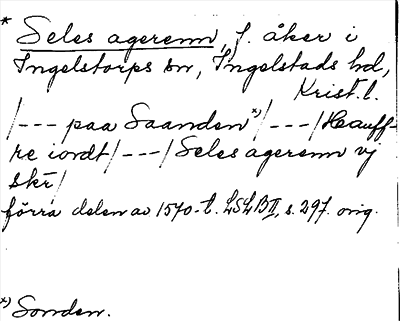 * Seles agerenn, f. åker i
Ingelstorps sn, Ingelstads hd,
Krist. l.
/--- paa Saanden *)/---/Heauff-
re iordt/---/Seles agerenn vj
skr/
förra delen av 1570-t. LSLB II, s. 297. orig.
*) Sonden.